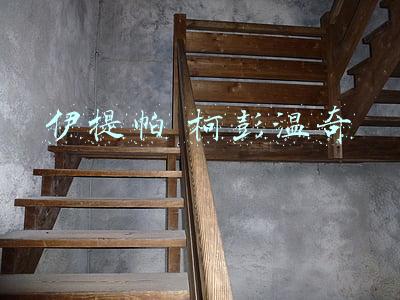 伊提帕 柯彭温奇